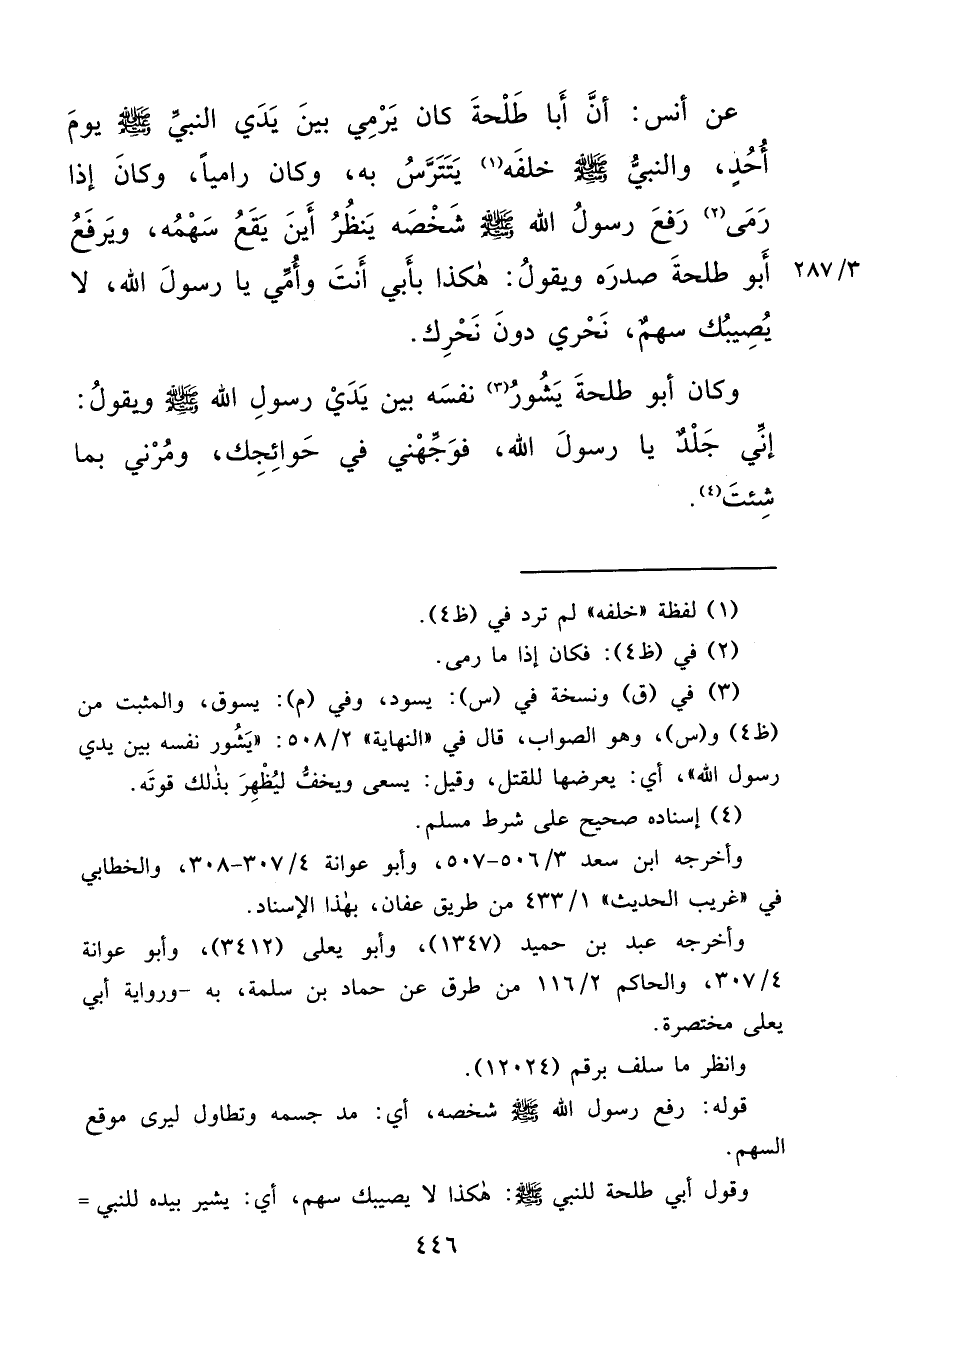 عن أنس: أنَّ أَبا طَلْحةَ كان يَرْمِي بينَ يَدَي النبيِّ ﷺ يومَ
أُحُدٍ، والنبيُّ ﷺ خلفَه(١) يَتَتَرَّسُ به، وكان رامياً، وكانَ إذا
رَمَى(٢) رَفَعَ رسولُ الله ﷺ شَخْصَه يَنظُرُ أَينَ يَقَعُ سَهْمُه، ويَرفَعُ
٢٨٧/٣ أَبو طلحةَ صدرَه ويقولُ: هٰكذا بأَبي أَنتَ وأُمِّي يا رسولَ الله، لا
يُصِيبُك سهمٌ، نَحْري دونَ نَحْرِك.
وكان أبو طلحةَ يَشُورُ(٣) نفسَه بين يَدَيْ رسولِ الله ﷺ ويقولُ:
إنِّي جَلْدٌ يا رسولَ الله، فوَجِّهْني في حَوائِجِك، ومُرْني بما
شِئتَ(٤).
(١) لفظة «خلفه» لم ترد في (ظ٤).
(٢) في (ظ٤): فكان إذا ما رمى.
(٣) في (ق) ونسخة في (س): يسود، وفي (م): يسوق، والمثبت من
(ظ٤) و(س)، وهو الصواب، قال في «النهاية» ٥٠٨/٢: «يَشُور نفسه بين يدي
رسول الله»، أي: يعرضها للقتل، وقيل: يسعى ويخفُّ ليُظْهِرَ بذٰلك قوتَه.
(٤) إسناده صحيح على شرط مسلم.
وأخرجه ابن سعد ٥٠٦/٣-٥٠٧، وأبو عوانة ٣٠٧/٤-٣٠٨، والخطابي
في «غريب الحديث» ٤٣٣/١ من طريق عفان، بهٰذا الإسناد.
وأخرجه عبد بن حميد (١٣٤٧)، وأبو يعلى (٣٤١٢)، وأبو عوانة
٣٠٧/٤، والحاكم ١١٦/٢ من طرق عن حماد بن سلمة، به -ورواية أبي
يعلى مختصرة.
وانظر ما سلف برقم (١٢٠٢٤).
قوله: رفع رسول الله ﷺ شخصه، أي: مد جسمه وتطاول ليرى موقع
السهم.
وقول أبي طلحة للنبي ﷺ: هٰكذا لا يصيبك سهم، أي: يشير بيده للنبي =
٤٤٦